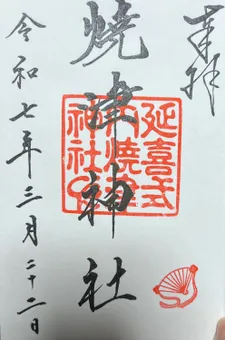 奉拝
延喜式
内焼津
神社印
焼津神社
令和七年三月二十二日